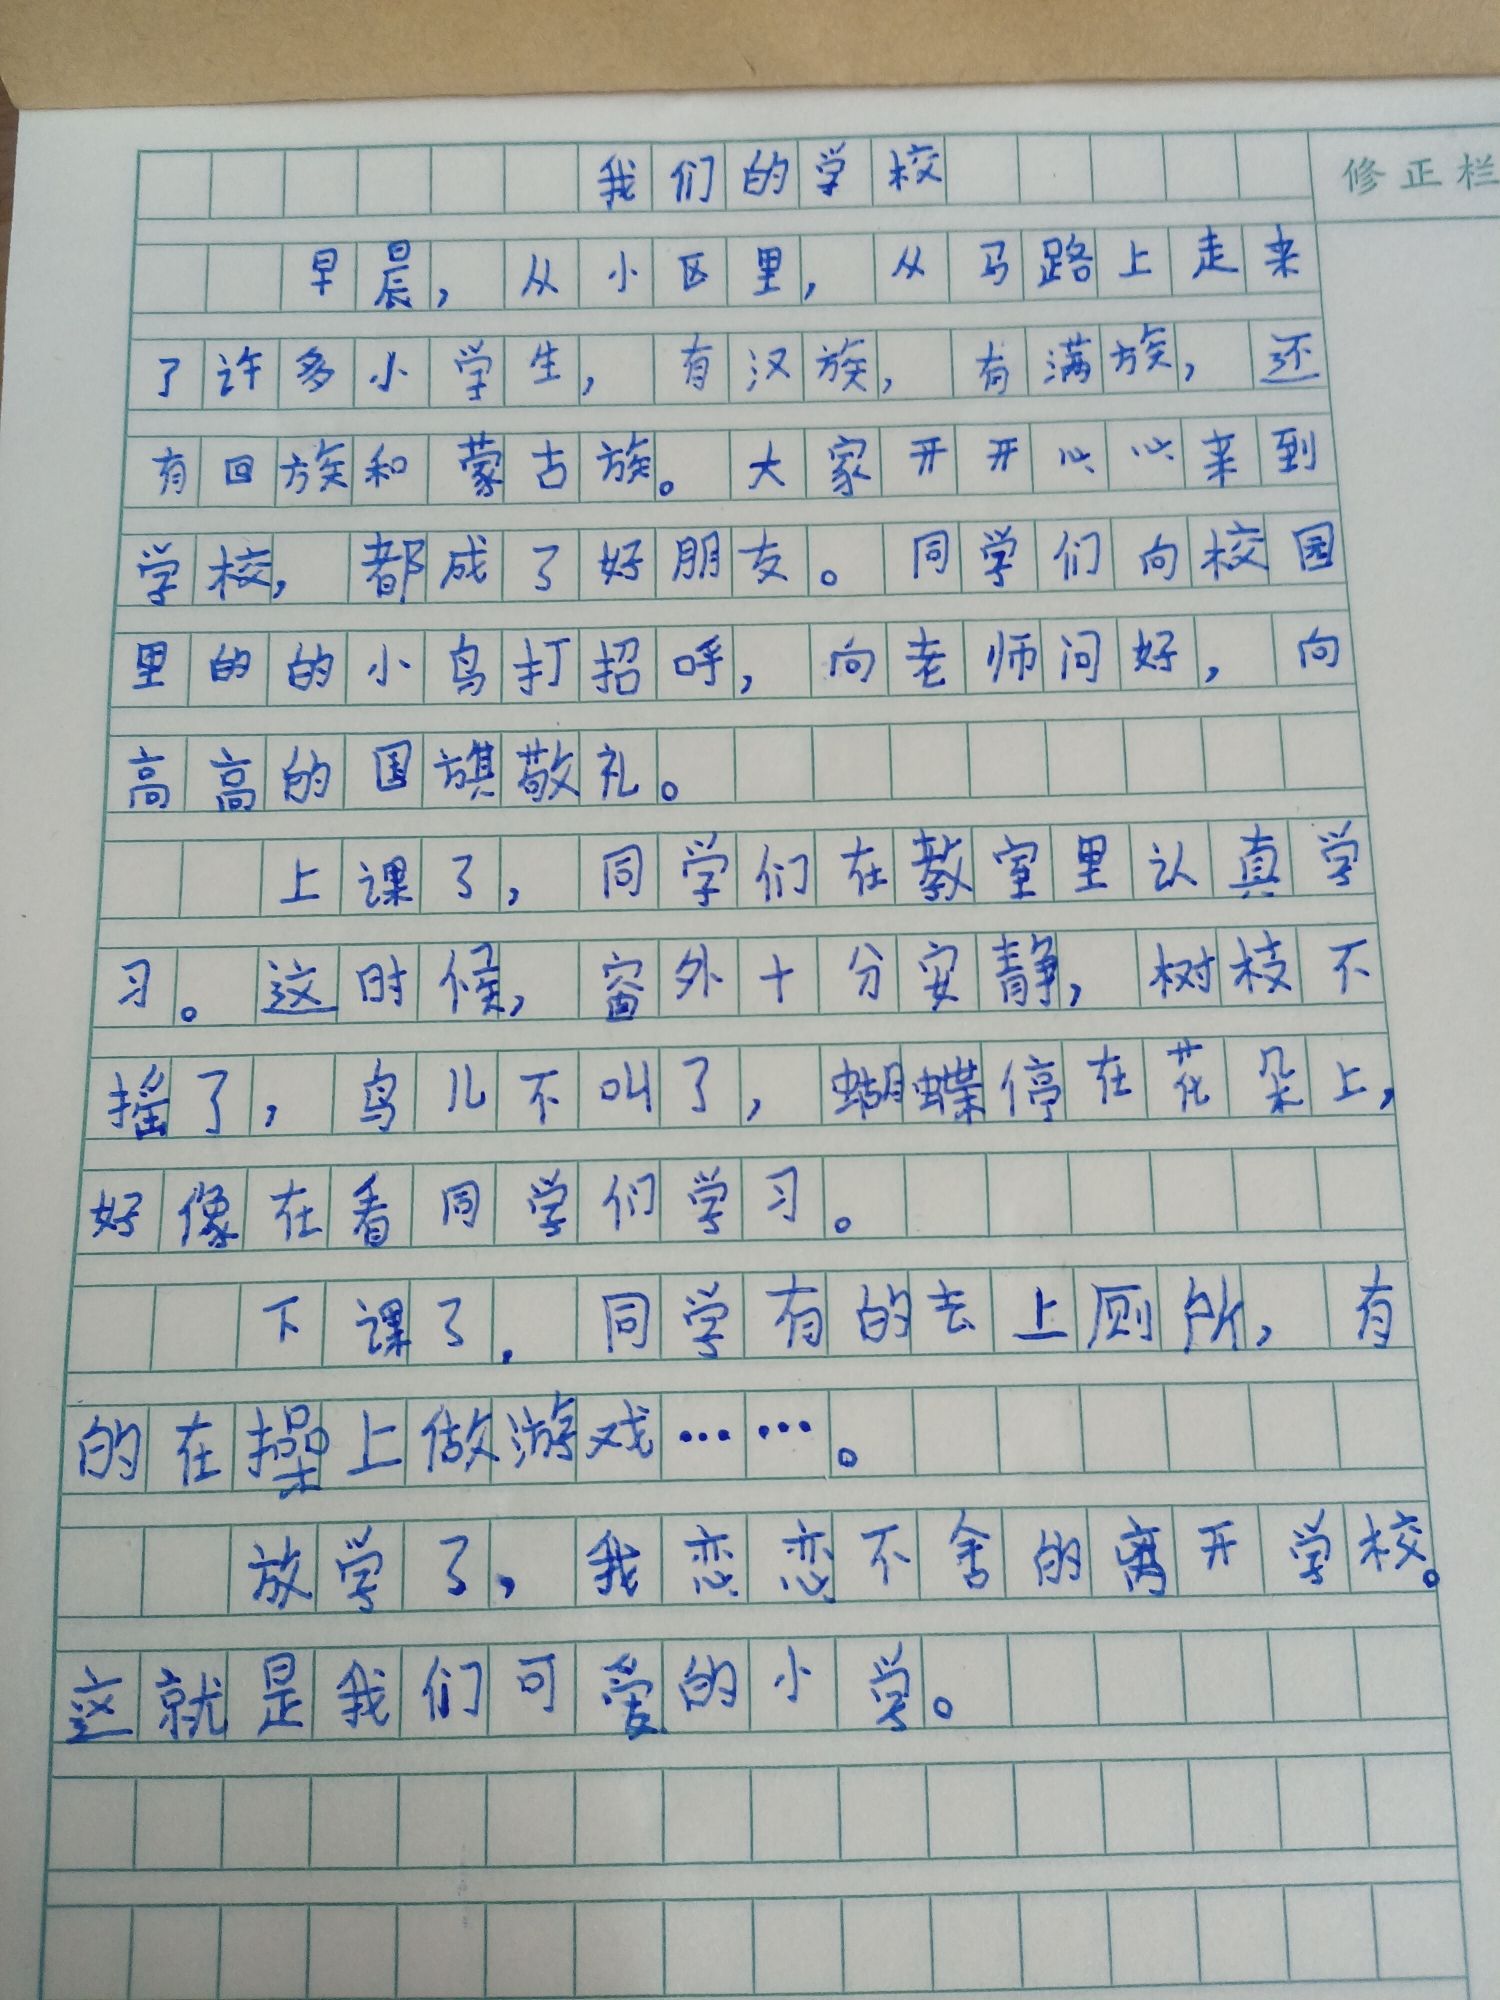 我们的学校
修正栏
早晨，从小区里，从马路上走来
了许多小学生，有汉族，有满族，还
有回族和蒙古族。大家开开心心来到
学校，都成了好朋友。同学们向校园
里的的小鸟打招呼，向老师问好，向
高高的国旗敬礼。
上课了，同学们在教室里认真学
习。这时候，窗外十分安静，树枝不
摇了，鸟儿不叫了，蝴蝶停在花朵上，
好像在看同学们学习。
下课了．同学有的去上厕所，有
的在操上做游戏……。
放学了，我恋恋不舍的离开学校。
这就是我们可爱的小学。